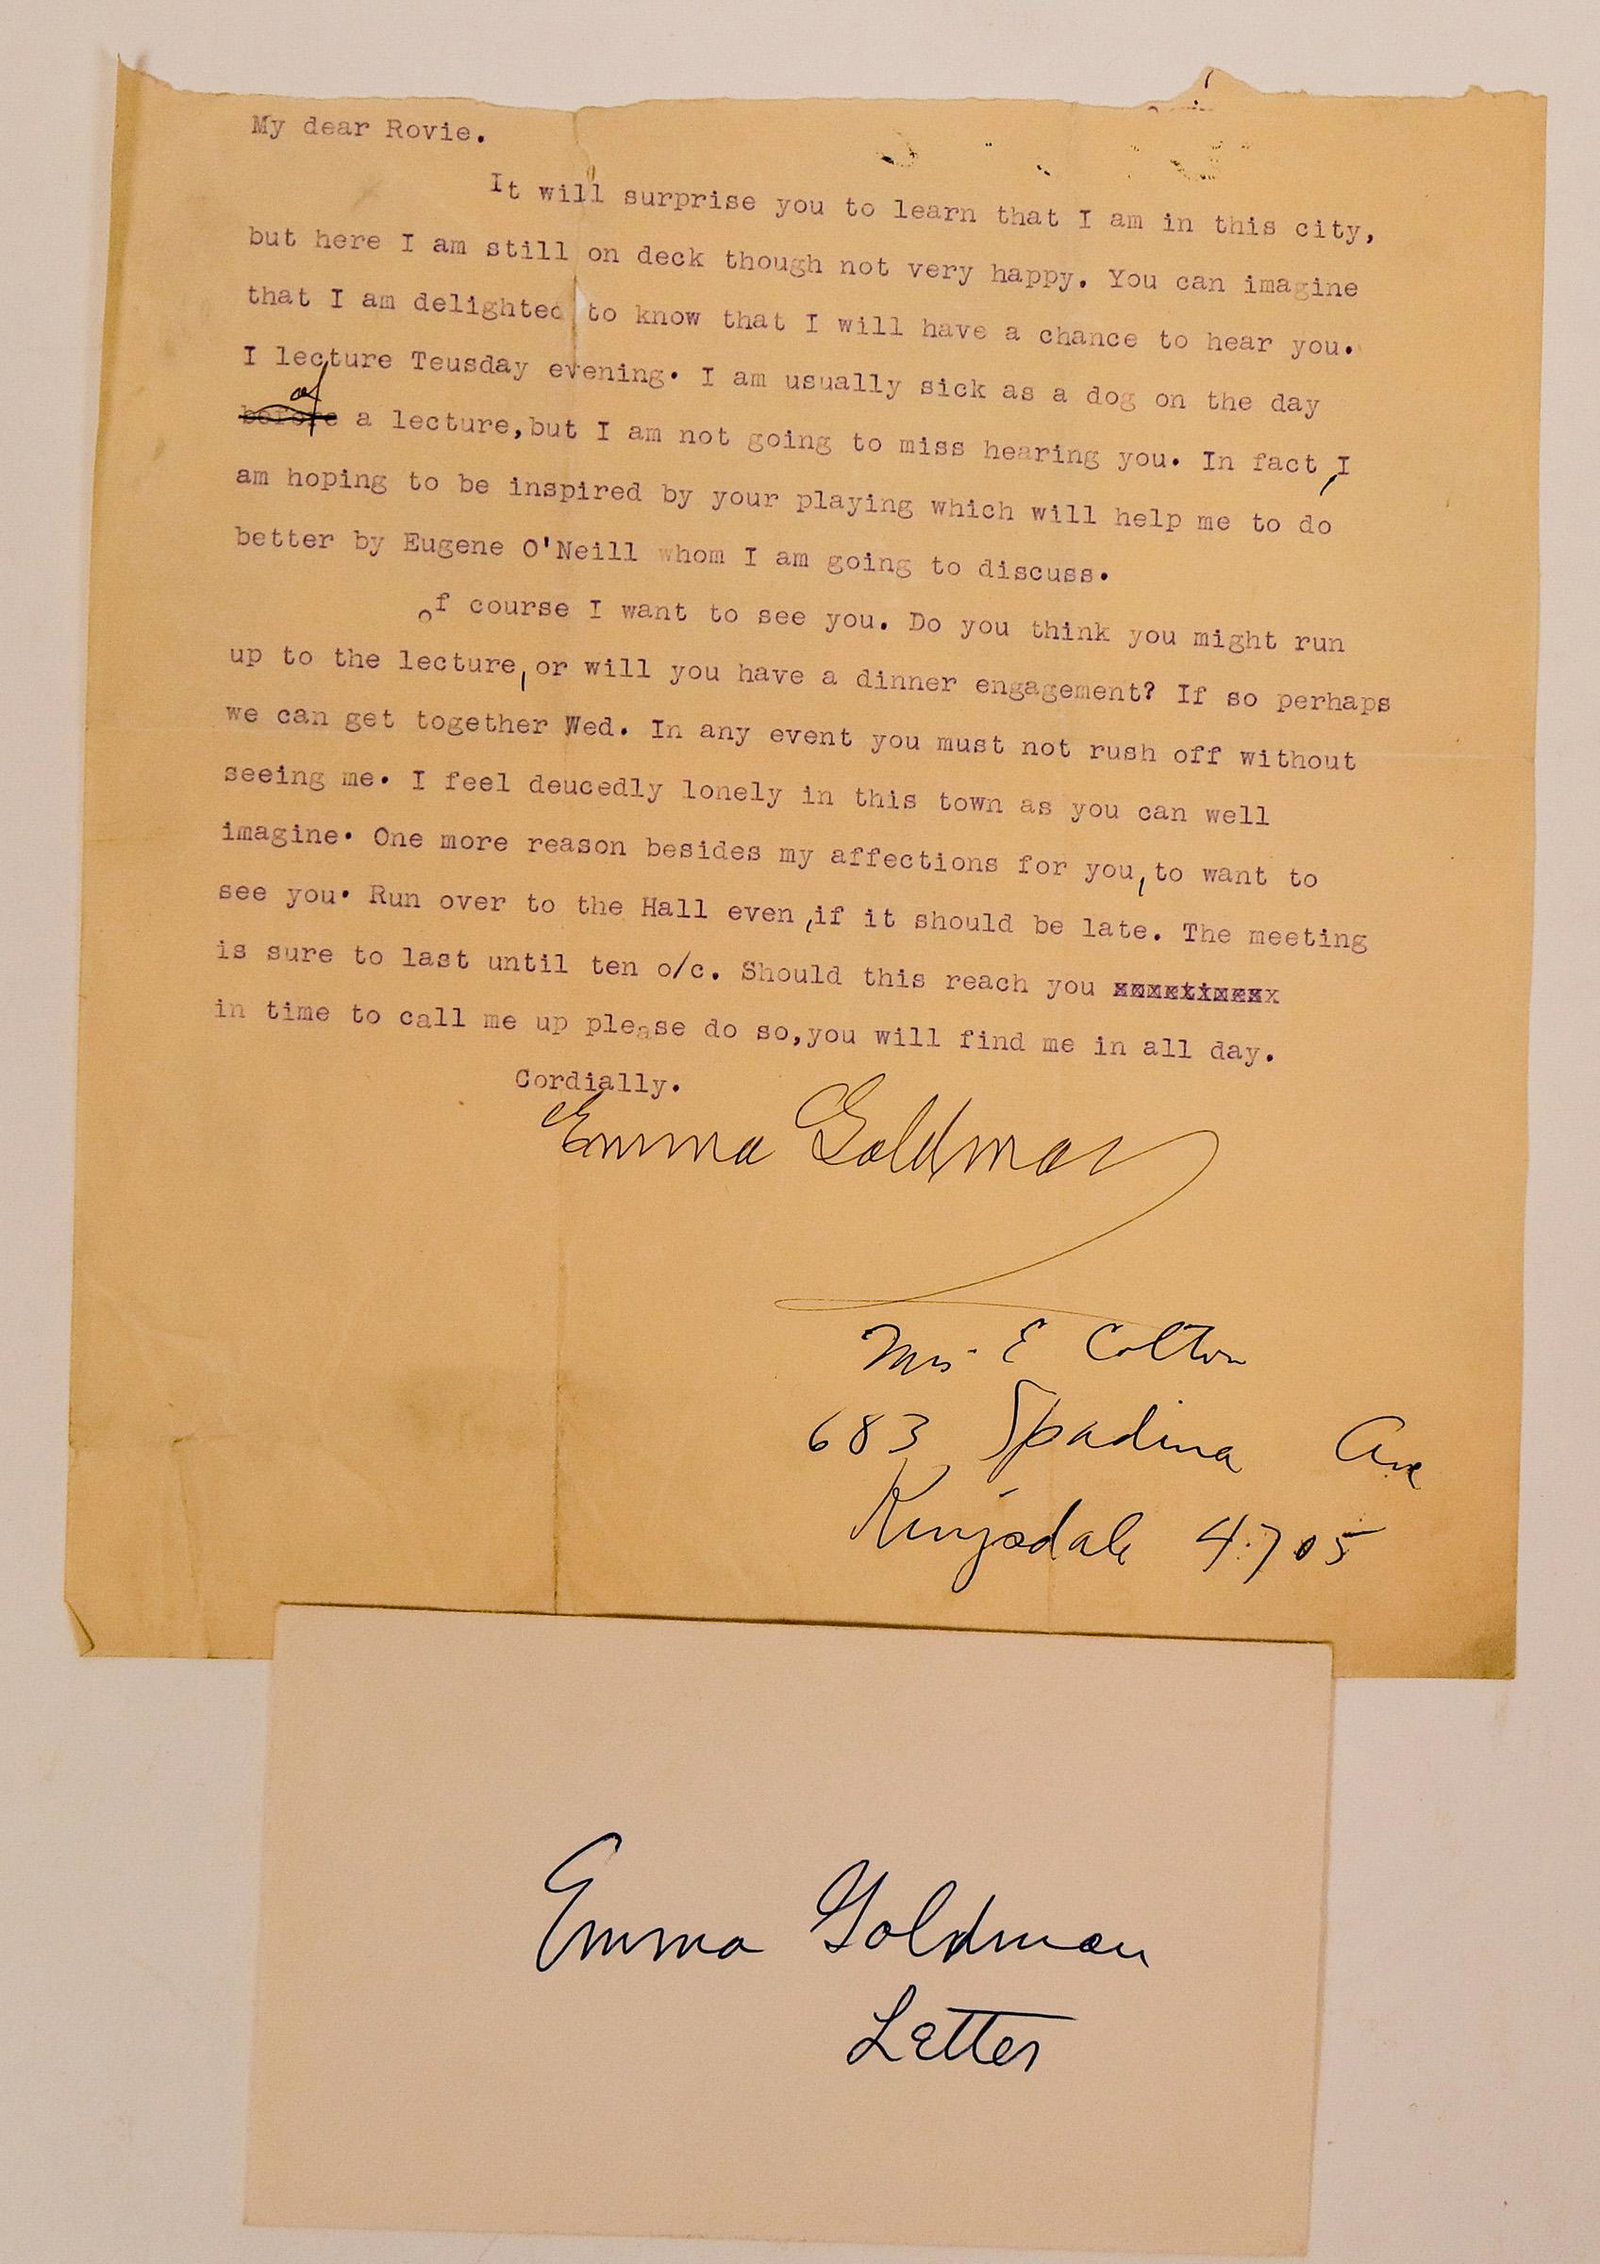 My dear Rovie.
It will surprise you to learn that I am in this city,
but here I am still on deck though not very happy. You can imagine
that I am delighted to know that I will have a chance to hear you.
I lecture Teusday evening. I am usually sick as a dog on the day
of
before a lecture,but I am not going to miss hearing you. In fact,I
am hoping to be inspired by your playing which will help me to do
better by Eugene O'Neill whom I am going to discuss.
of course I want to see you. Do you think you might run
up to the lecture,or will you have a dinner engagement? If so perhaps
we can get together Wed. In any event you must not rush off without
seeing me. I feel deucedly lonely in this town as you can well
imagine. One more reason besides my affections for you,to want to
see you. Run over to the Hall even,if it should be late. The meeting
is sure to last until ten o/c. Should this reach you
in time to call me up please do so,you will find me in all day.
Cordially.
Emma Goldman
Mrs E Colton
683 Spadina Ave
Kingsdale 4705
Emma Goldman
Letter